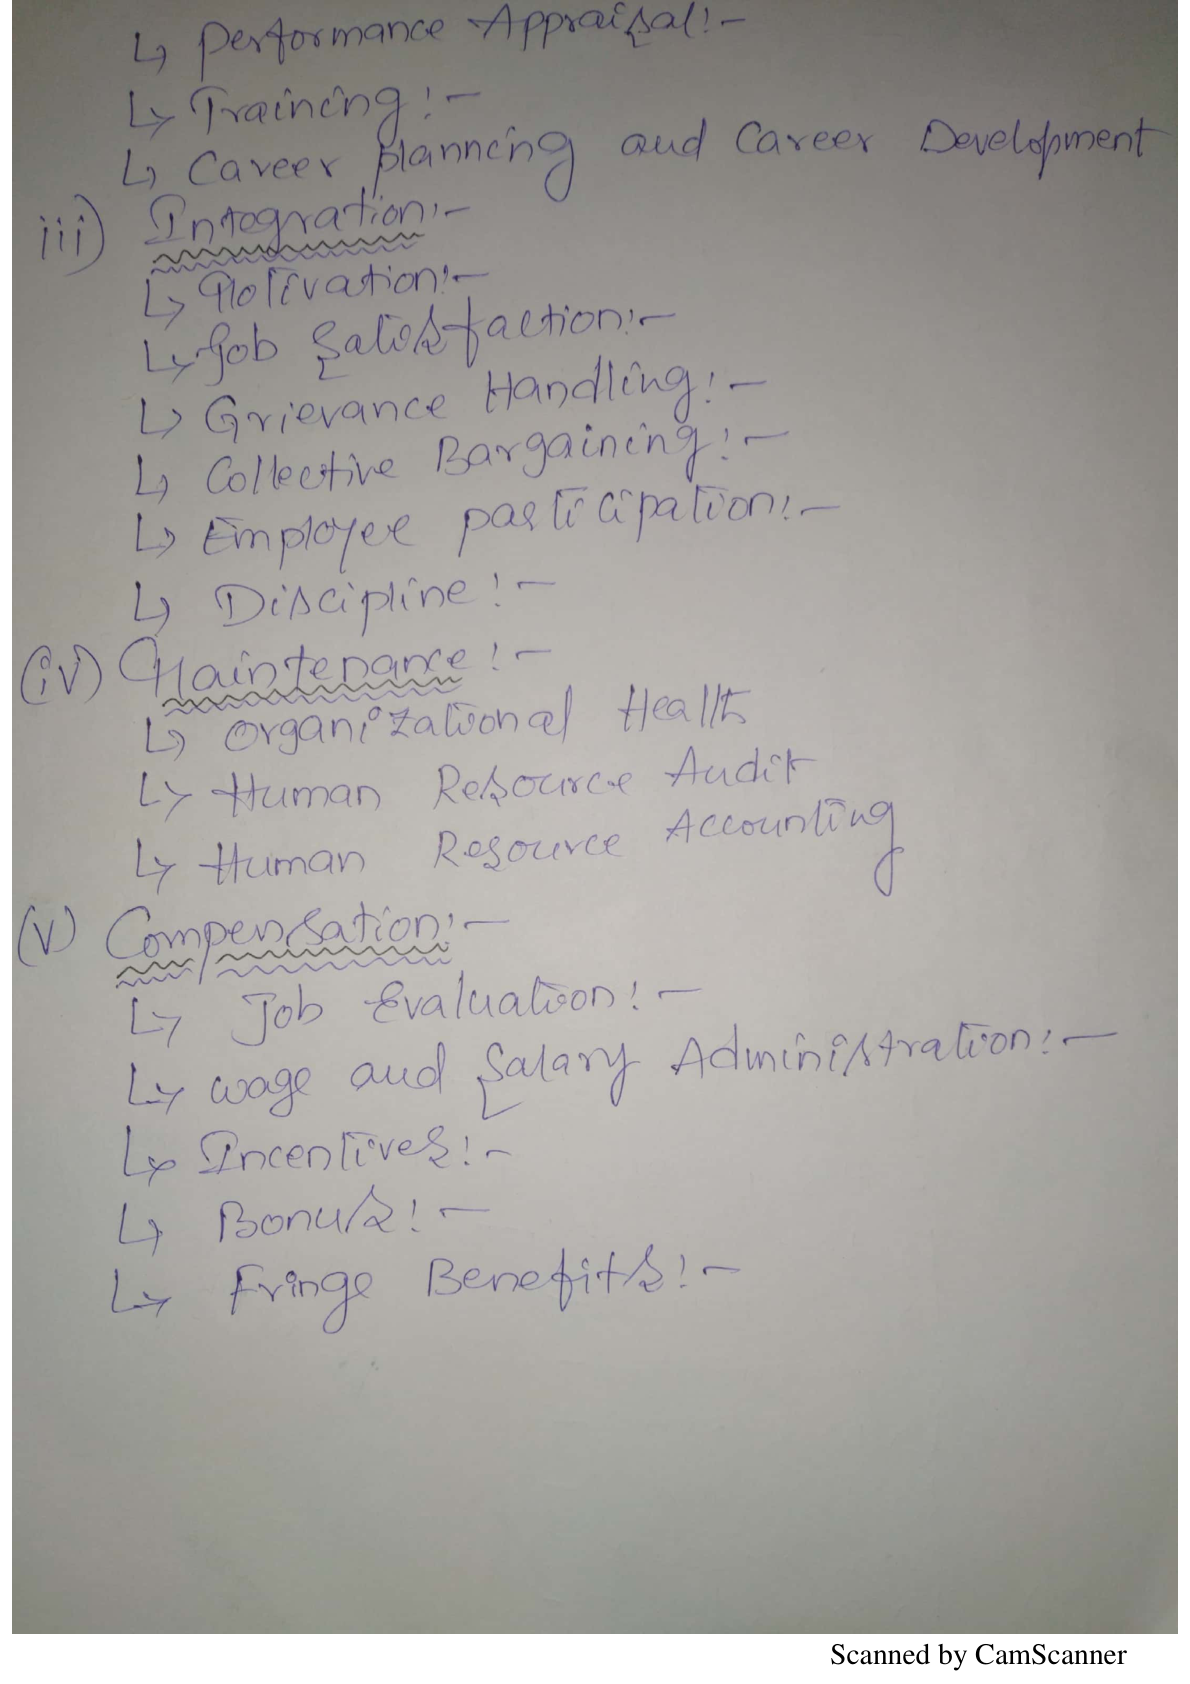 ↳ Performance Appraisal:-
↳ Training:-
↳ Career planning and Career Development
iii) Integration:-
↳ Motivation:-
↳ Job Satisfaction:-
↳ Grievance Handling:-
↳ Collective Bargaining:-
↳ Employee participation:-
↳ Discipline:-
(iv) Maintenance:-
↳ Organizational Health
↳ Human Resource Audit
↳ Human Resource Accounting
(v) Compensation:-
↳ Job Evaluation:-
↳ wage and Salary Administration:-
↳ Incentives:-
↳ Bonus:-
↳ Fringe Benefits:-
Scanned by CamScanner